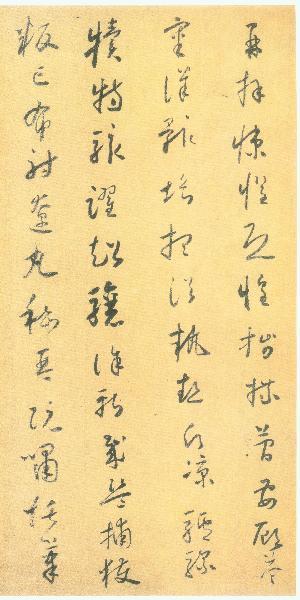 再拜悚懼恐惶牋牒簡要顧答
審詳骸垢想浴執熱願涼驢騾
犢特駭躍超驤誅斬賊盜捕獲
叛亡布射遼丸嵇琴阮嘯恬筆